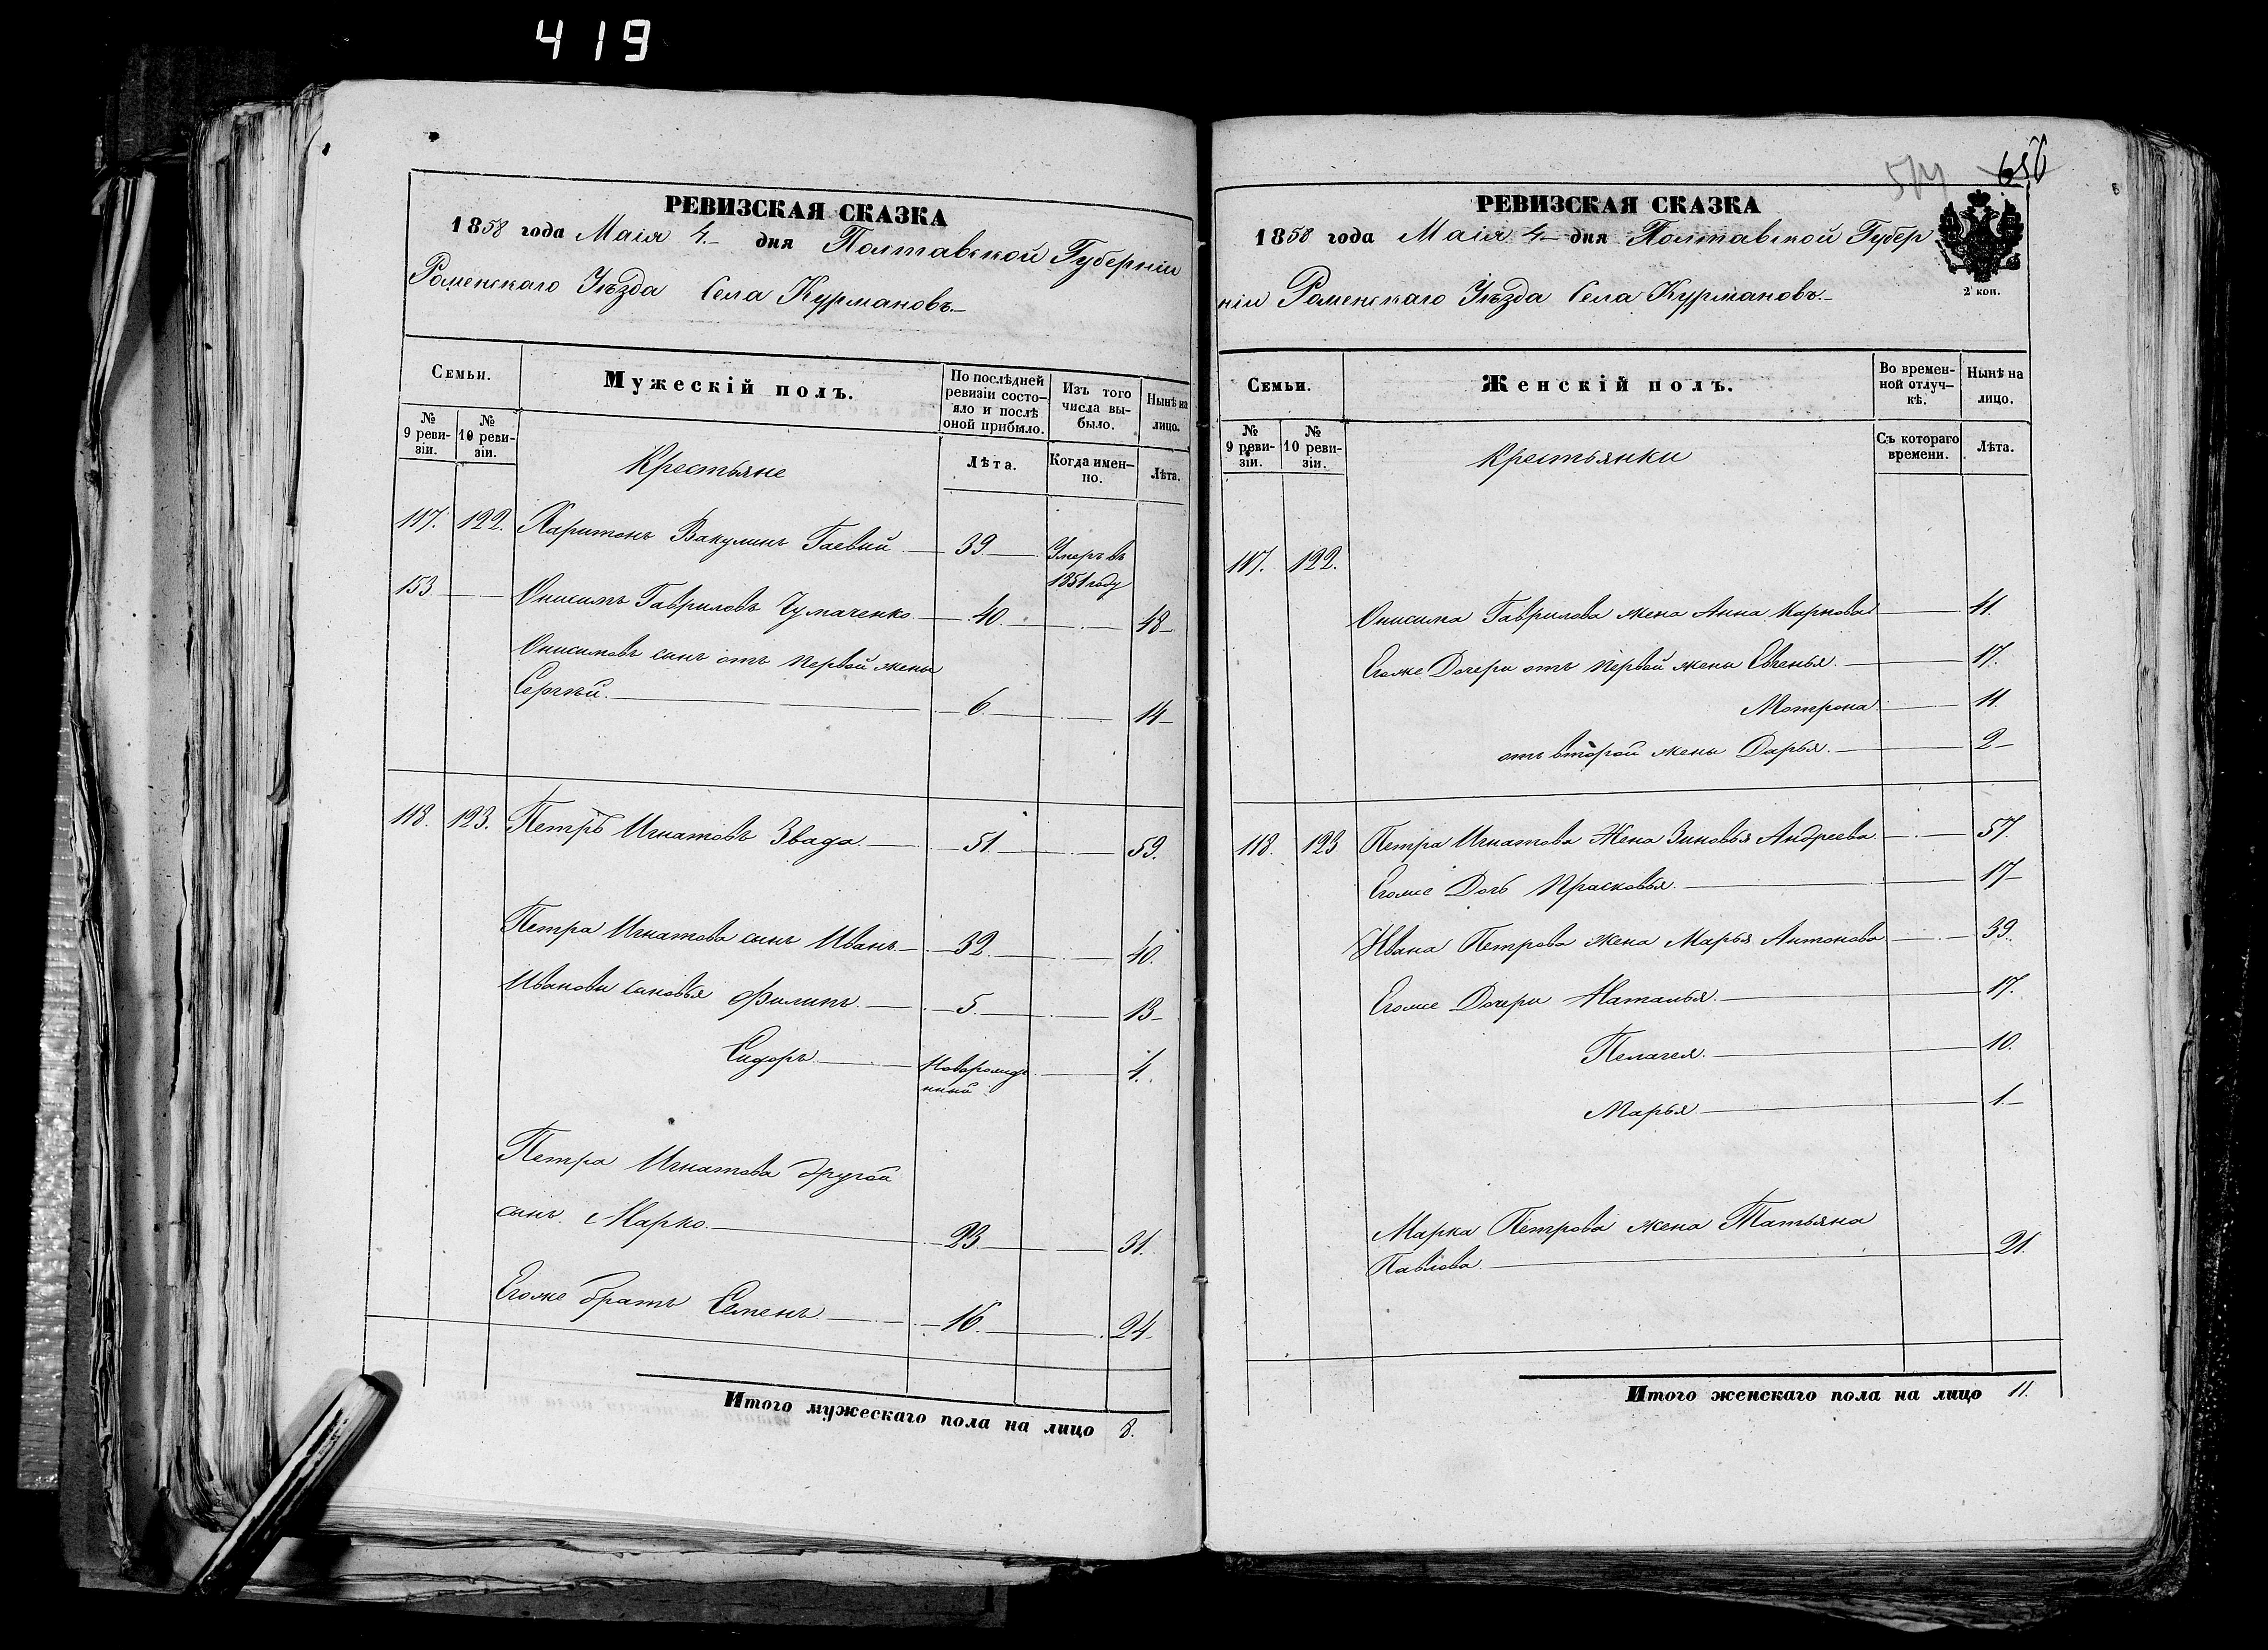 419
РЕВИЗСКАЯ СКАЗКА
1858 года Маія 4.- дня Полтавской Губерніи
Роменскаго Уѣзда Села Курмановъ.-
Семьи.
Мужескій полъ.
По послѣдней ревизіи состо-
яло и послѣ оной прибыло.
Изъ того числа вы-
было.
Нынѣ на лицо.
№ 9 реви-
зіи.
№ 10 реви-
зіи.
Крестьяне
Лѣта.
Когда имен-
но.
Лѣта.
117. 122. Харитонъ Вакулинъ Гаевий 39 Умеръ въ
1851 году
153 Онисимъ Гавриловъ Чумаченко 40. 48
Онисимовъ синъ отъ первой жены
Сергѣй. 6. 14
118. 123. Петръ Игнатовъ Звада 51 59.
Петра Игнатова синъ Иванъ 32. 40.
Иванови синовья Филипъ. 5. 13
Сидоръ Новорожде
нный 4.
Петра Игнатова другой
синъ Марко. 23 31.
Егоже братъ Семенъ 16. 24
Итого мужескаго пола на лицо 8.
656
РЕВИЗСКАЯ СКАЗКА
1858 года Маія 4 дня Полтавской Губер
ніи Роменскаго Уѣзда Села Курмановъ.-
2 коп.
Семьи.
Женскій полъ.
Во времен-
ной отлуч-
кѣ.
Нынѣ на лицо.
№ 9 реви-
зіи.
№ 10 реви-
зіи.
Крестьянки
Съ котораго времени.
Лѣта.
117. 122.
Онисима Гаврилова жена Анна Карпова 41.
Егоже Дочери отъ первой жены Евгенья. 17.
Мотрона 11.
отъ второй жены Дарья. 2
118. 123 Петра Игнатова Жена Зиновья Андреева 57.
Егоже Дочь Прасковья. 17
Ивана Петрова жена Марья Антонова 39.
Егоже Дочери Наталья. 17.
Пелагея. 10.
Марья 1.
Марка Петрова жена Татьяна
Павлова 21.
Итого женскаго пола на лицо 11.